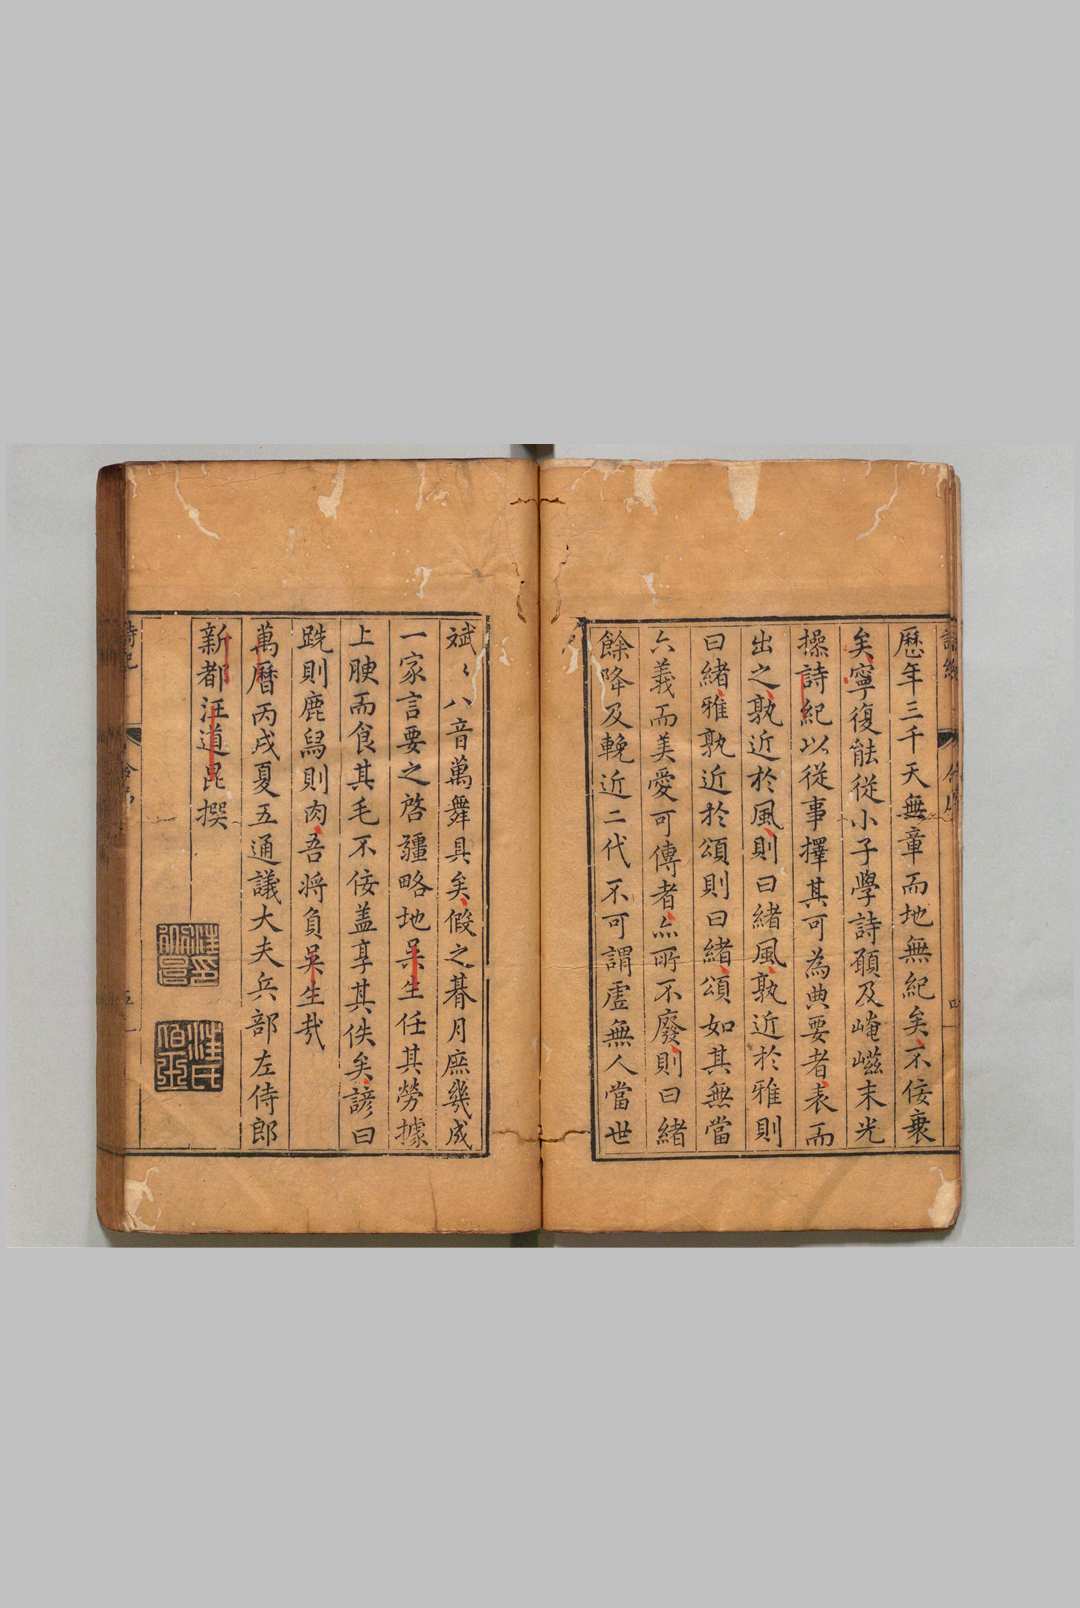 歷年三千天無章而地無紀矣不佞衰
矣寧復能從小子學詩頋及崦嵫末光
操詩紀以從事擇其可為典要者表而
出之孰近於風則曰緒風孰近於雅則
曰緒雅孰近於頌則曰緒頌如其無當
六義而美愛可傳者亦所不廢則曰緒
餘降及輓近二代不可謂虛無人當世
斌〻八音萬舞具矣假之朞月庶幾成
一家言要之啓疆略地吳生任其勞據
上腴而食其毛不佞盖享其佚矣諺曰
跣則鹿舄則肉吾將負吳生哉
萬曆丙戌夏五通議大夫兵部左侍郎
新都汪道昆撰
汪印
汪氏
伯玉